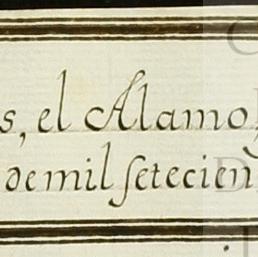 s, el Alamo,
de mil setecien